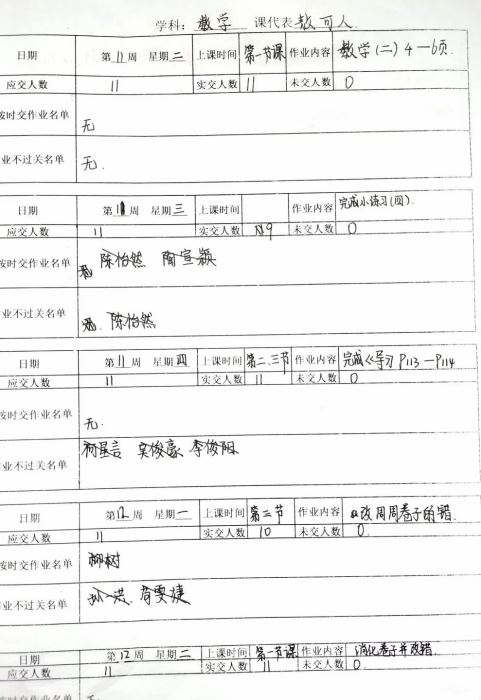 学科：数学 课代表
日期 第11周 星期二 上课时间 第一节课 作业内容 数学(二)4—6页.
应交人数 11 实交人数 11 未交人数 0
按时交作业名单 无
业不过关名单 无.
日期 第11周 星期三 上课时间 作业内容 完成小练习(四).
应交人数 11 实交人数 9 未交人数 0
按时交作业名单 陈怡然 陶宣颖
业不过关名单 陈怡然
日期 第11周 星期四 上课时间 第二、三节 作业内容 完成《导习 P113—P114
应交人数 11 实交人数 11 未交人数 0
按时交作业名单 无.
业不过关名单 吴俊豪 李俊阳
日期 第12周 星期一 上课时间 第三节 作业内容 改周周卷子的错.
应交人数 11 实交人数 10 未交人数 0.
按时交作业名单 柳树
业不过关名单
日期 第12周 星期二 上课时间 第一节课 作业内容 消化卷子并改错.
应交人数 11 实交人数 11 未交人数 0.
按时交作业名单 无